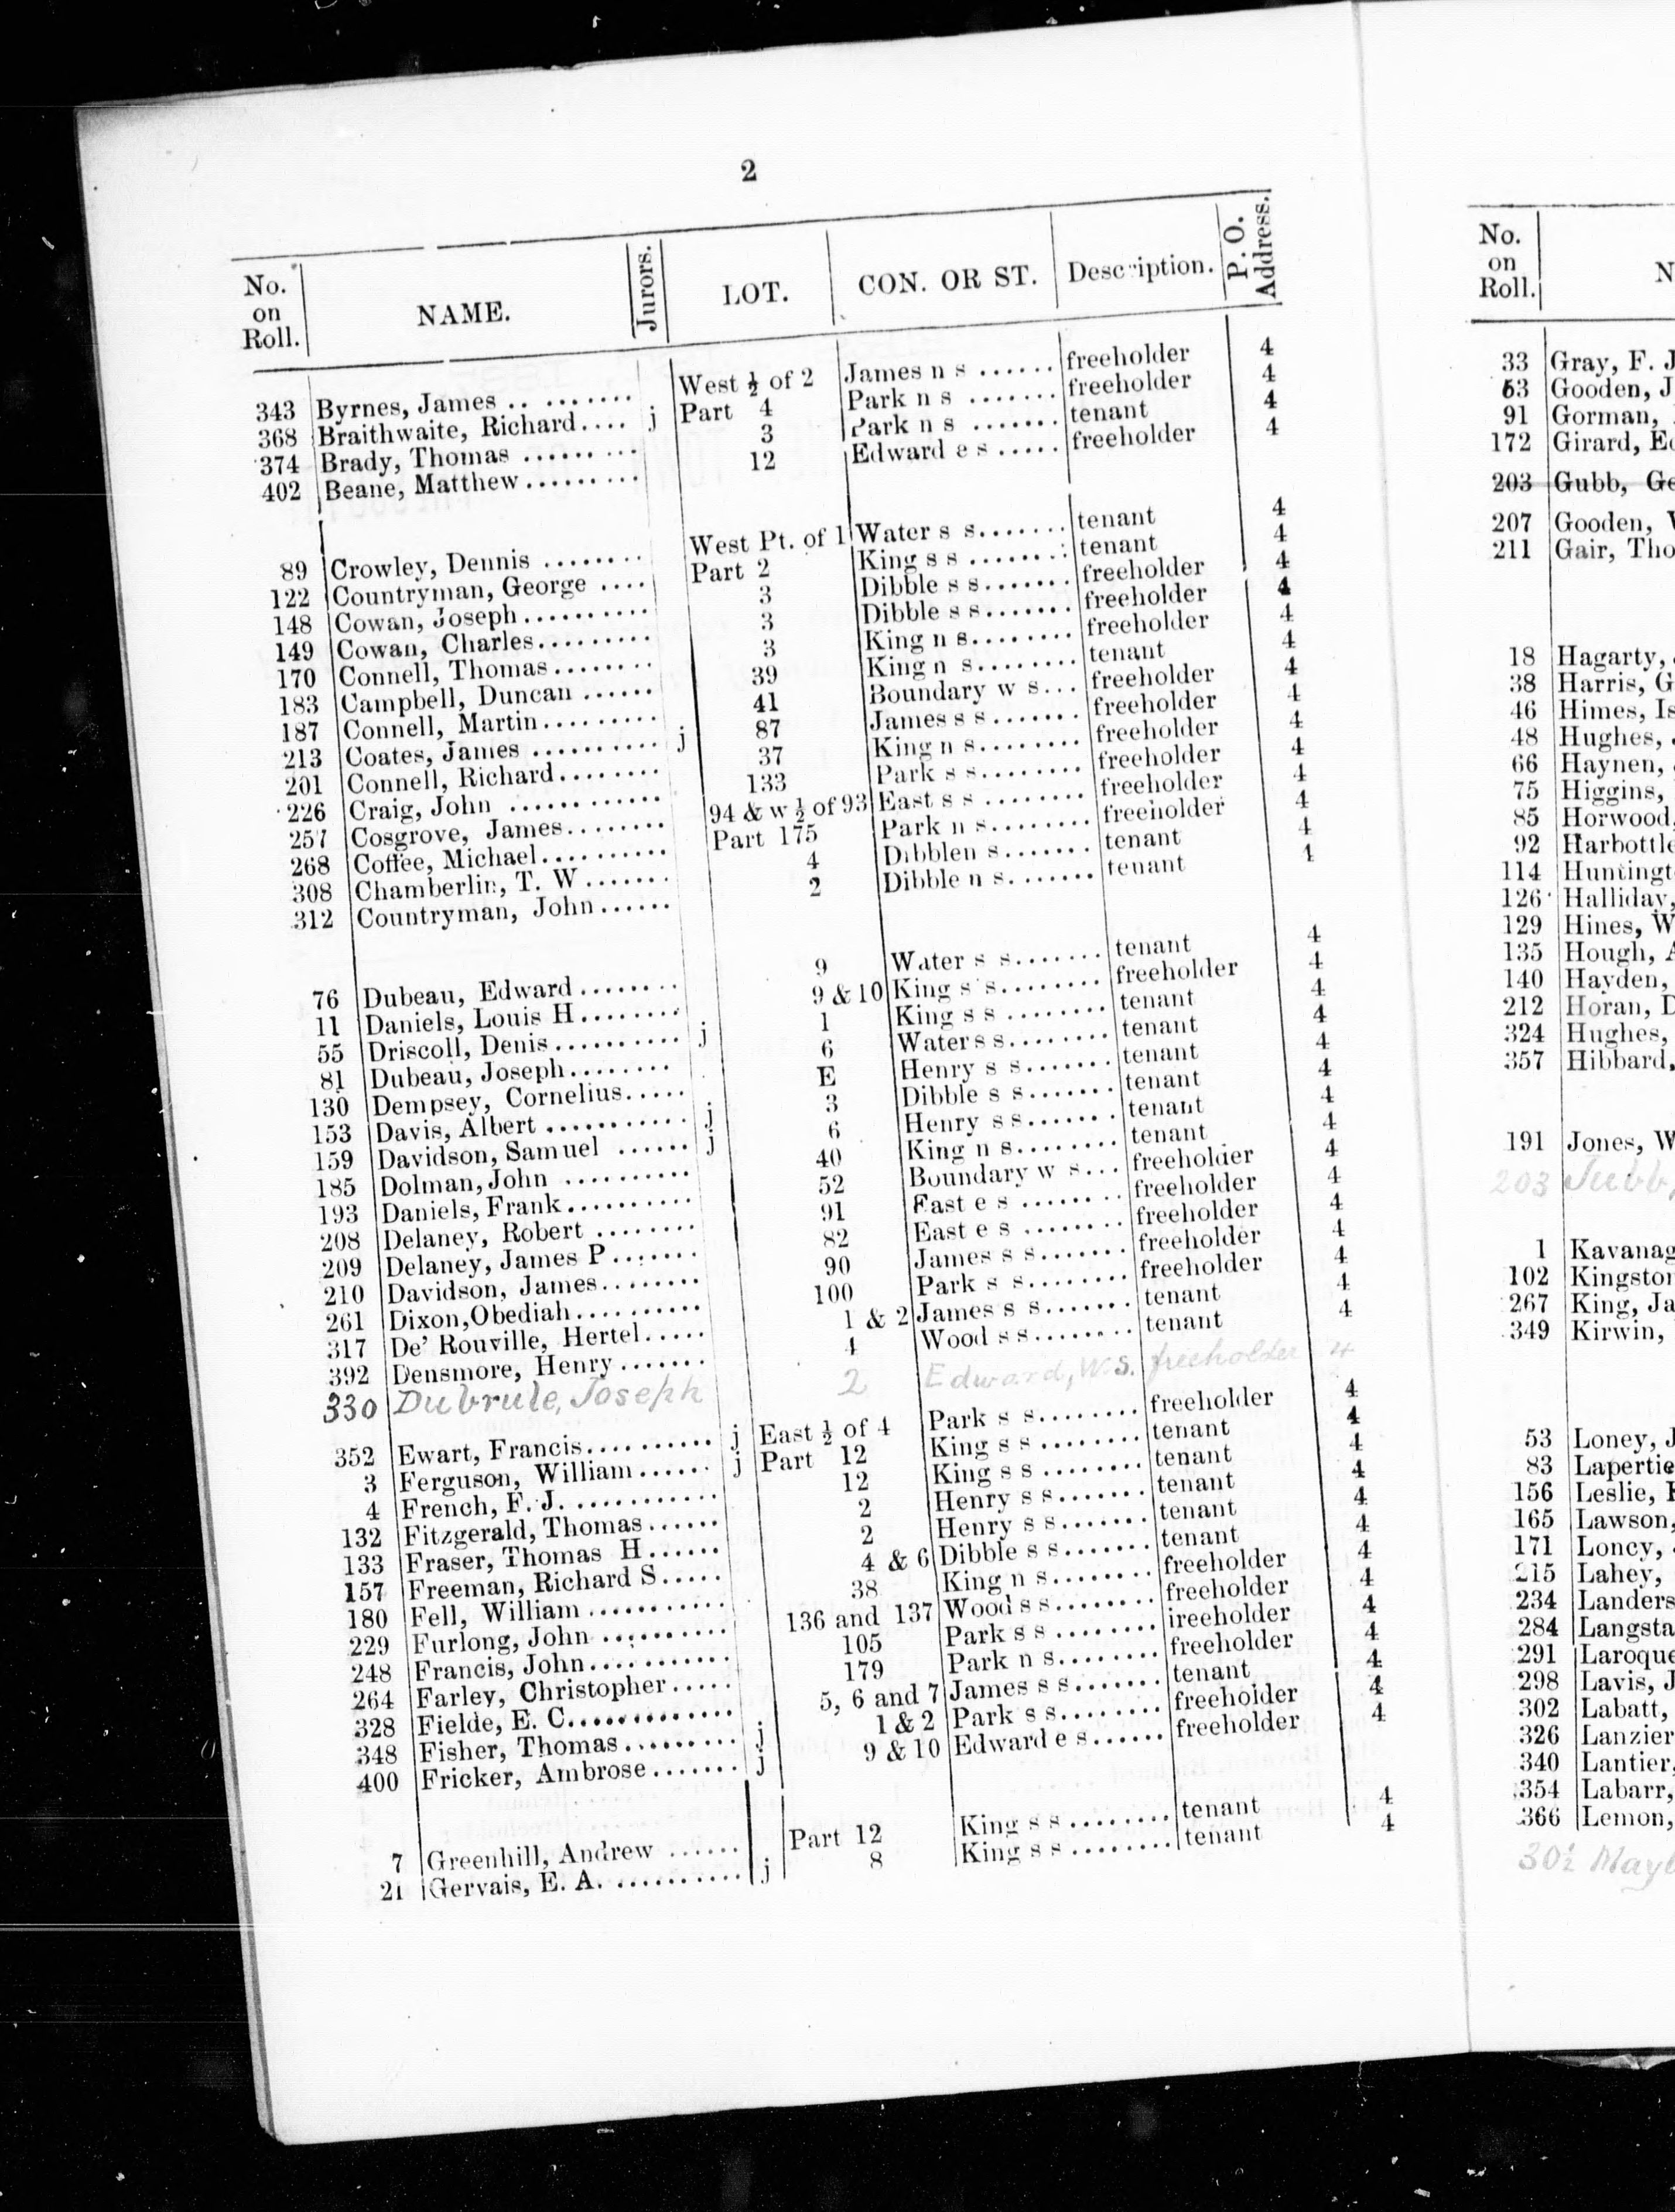 2
No. on Roll. NAME. Jurors. LOT. CON. OR ST. Description. P. O. Address.
343 Byrnes, James .. ....... West ½ of 2 James n s ...... freeholder 4
368 Braithwaite, Richard.... j Part 4 Park n s ....... freeholder 4
374 Brady, Thomas ......... 3 Park n s ....... tenant 4
402 Beane, Matthew......... 12 Edward e s ..... freeholder 4
89 Crowley, Dennis ........ West Pt. of 1 Water s s....... tenant 4
122 Countryman, George .... Part 2 King s s ........ tenant 4
148 Cowan, Joseph.......... 3 Dibble s s....... freeholder 4
149 Cowan, Charles......... 3 Dibble s s....... freeholder 4
170 Connell, Thomas........ 3 King n s........ freeholder 4
183 Campbell, Duncan ...... 39 King n s........ tenant 4
187 Connell, Martin......... 41 Boundary w s... freeholder 4
213 Coates, James .......... j 87 James s s....... freeholder 4
201 Connell, Richard........ 37 King n s........ freeholder 4
226 Craig, John ............ 133 Park s s........ freeholder 4
257 Cosgrove, James........ 94 & w ½ of 93 East s s ........ freeholder 4
268 Coffee, Michael.......... Part 175 Park n s........ freeholder 4
308 Chamberlin, T. W ....... 4 Dibblen s....... tenant 4
312 Countryman, John...... 2 Dibble n s....... tenant 4
76 Dubeau, Edward........ 9 Water s s....... tenant 4
11 Daniels, Louis H........ 9 & 10 King s s........ freeholder 4
55 Driscoll, Denis.......... j 1 King s s ........ tenant 4
81 Dubeau, Joseph........ 6 Water s s........ tenant 4
130 Dempsey, Cornelius..... E Henry s s....... tenant 4
153 Davis, Albert ........... j 3 Dibble s s....... tenant 4
159 Davidson, Samuel ...... j 6 Henry s s....... tenant 4
185 Dolman, John .......... 40 King n s........ tenant 4
193 Daniels, Frank.......... 52 Boundary w s... freeholder 4
208 Delaney, Robert ........ 91 East e s ........ freeholder 4
209 Delaney, James P....... 82 East e s ........ freeholder 4
210 Davidson, James........ 90 James s s....... freeholder 4
261 Dixon, Obediah.......... 100 Park s s........ freeholder 4
317 De' Rouville, Hertel..... 1 & 2 James s s....... tenant 4
392 Densmore, Henry....... 4 Wood s s........ tenant 4
330 Dubrule, Joseph 2 Edward, W.S. freeholder 4
352 Ewart, Francis.......... j East ½ of 4 Park s s........ freeholder 4
3 Ferguson, William...... j Part 12 King s s ........ tenant 4
4 French, F. J. ............ 12 King s s ........ tenant 4
132 Fitzgerald, Thomas...... 2 Henry s s....... tenant 4
133 Fraser, Thomas H...... 2 Henry s s....... tenant 4
157 Freeman, Richard S..... 4 & 6 Dibble s s....... tenant 4
180 Fell, William ........... 38 King n s........ freeholder 4
229 Furlong, John .......... 136 and 137 Wood s s........ freeholder 4
248 Francis, John............ 105 Park s s ........ ireeholder 4
264 Farley, Christopher..... 179 Park n s........ freeholder 4
328 Fielde, E. C.............. 5, 6 and 7 James s s....... tenant 4
348 Fisher, Thomas.......... j 1 & 2 Park s s........ freeholder 4
400 Fricker, Ambrose....... j 9 & 10 Edward e s...... freeholder 4
7 Greenhill, Andrew ...... Part 12 King s s ........ tenant 4
21 Gervais, E. A. ........... j 8 King s s ........ tenant 4
No. on Roll. N
33 Gray, F. J
63 Gooden, J
91 Gorman,
172 Girard, Ed
203 Gubb, Ge
207 Gooden, W
211 Gair, Tho
18 Hagarty,
38 Harris, G
46 Himes, Is
48 Hughes,
66 Haynen,
75 Higgins,
85 Horwood,
92 Harbottle
114 Huntingt
126 Halliday,
129 Hines, W
135 Hough, A
140 Hayden,
212 Horan, D
324 Hughes,
357 Hibbard,
191 Jones, W
203 Jubb,
1 Kavanag
102 Kingston
267 King, Ja
349 Kirwin,
53 Loney, J
83 Lapertie
156 Leslie,
165 Lawson,
171 Loncy,
215 Lahey,
234 Landers
284 Langsta
291 Laroque
298 Lavis, J
302 Labatt,
326 Lanzier
340 Lantier,
354 Labarr,
366 Lemon,
30½ Mayb